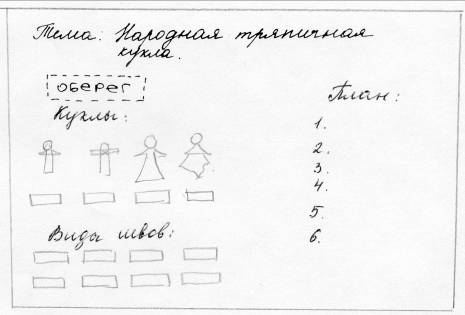 Тема: Народная тряпичная
кукла.
оберег
Куклы:
Виды швов:
План:
1.
2.
3.
4.
5.
6.